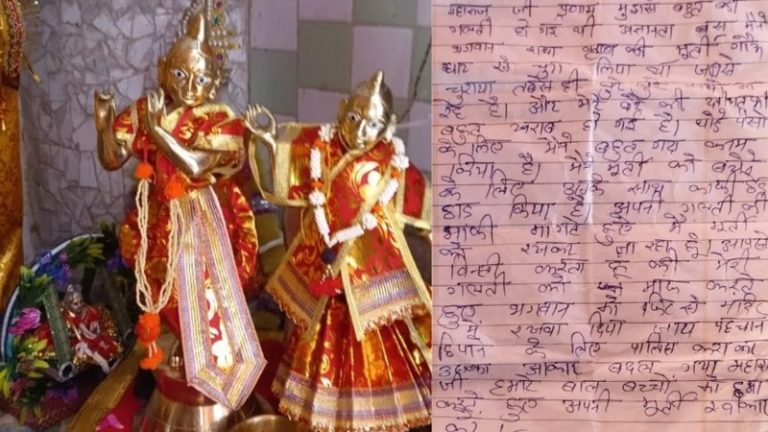 महाराज जी प्रणाम मुझसे बहुत बड़ी
गलती हो गई थी अज्ञानता वस मैंने
भगवान राधा कृष्ण की मूर्ती गौघाट
से चुरा लिया था जबसे
चुराया तबसे ही बुरे
रहे है। और मेरे बेटे की तबीयत भी
बहुत खराब हो गई है। थोड़े पैसो
के लिए मैंने बहुत गंदा काम
किया है। मैंने मूर्ती को बेचने
के लिए उसके साथ काफी छेड़
छाड़ किया है अपनी गलती की
माफी मांगते हुए मैं मूर्ती
को रखकर जा रहा हूं। आपसे
विन्ती करता हूं की मेरी
गलती को माफ करते
हुए भगवान को फिर से मंदिर
में रखवा दिया जाय पहचान
छिपाने के लिए पालिस कराकर
उसका आकार बदल गया महाराज
जी हमारे बाल बच्चों को क्षमा
करते हुए अपनी मूर्ती स्वीकार
करे।